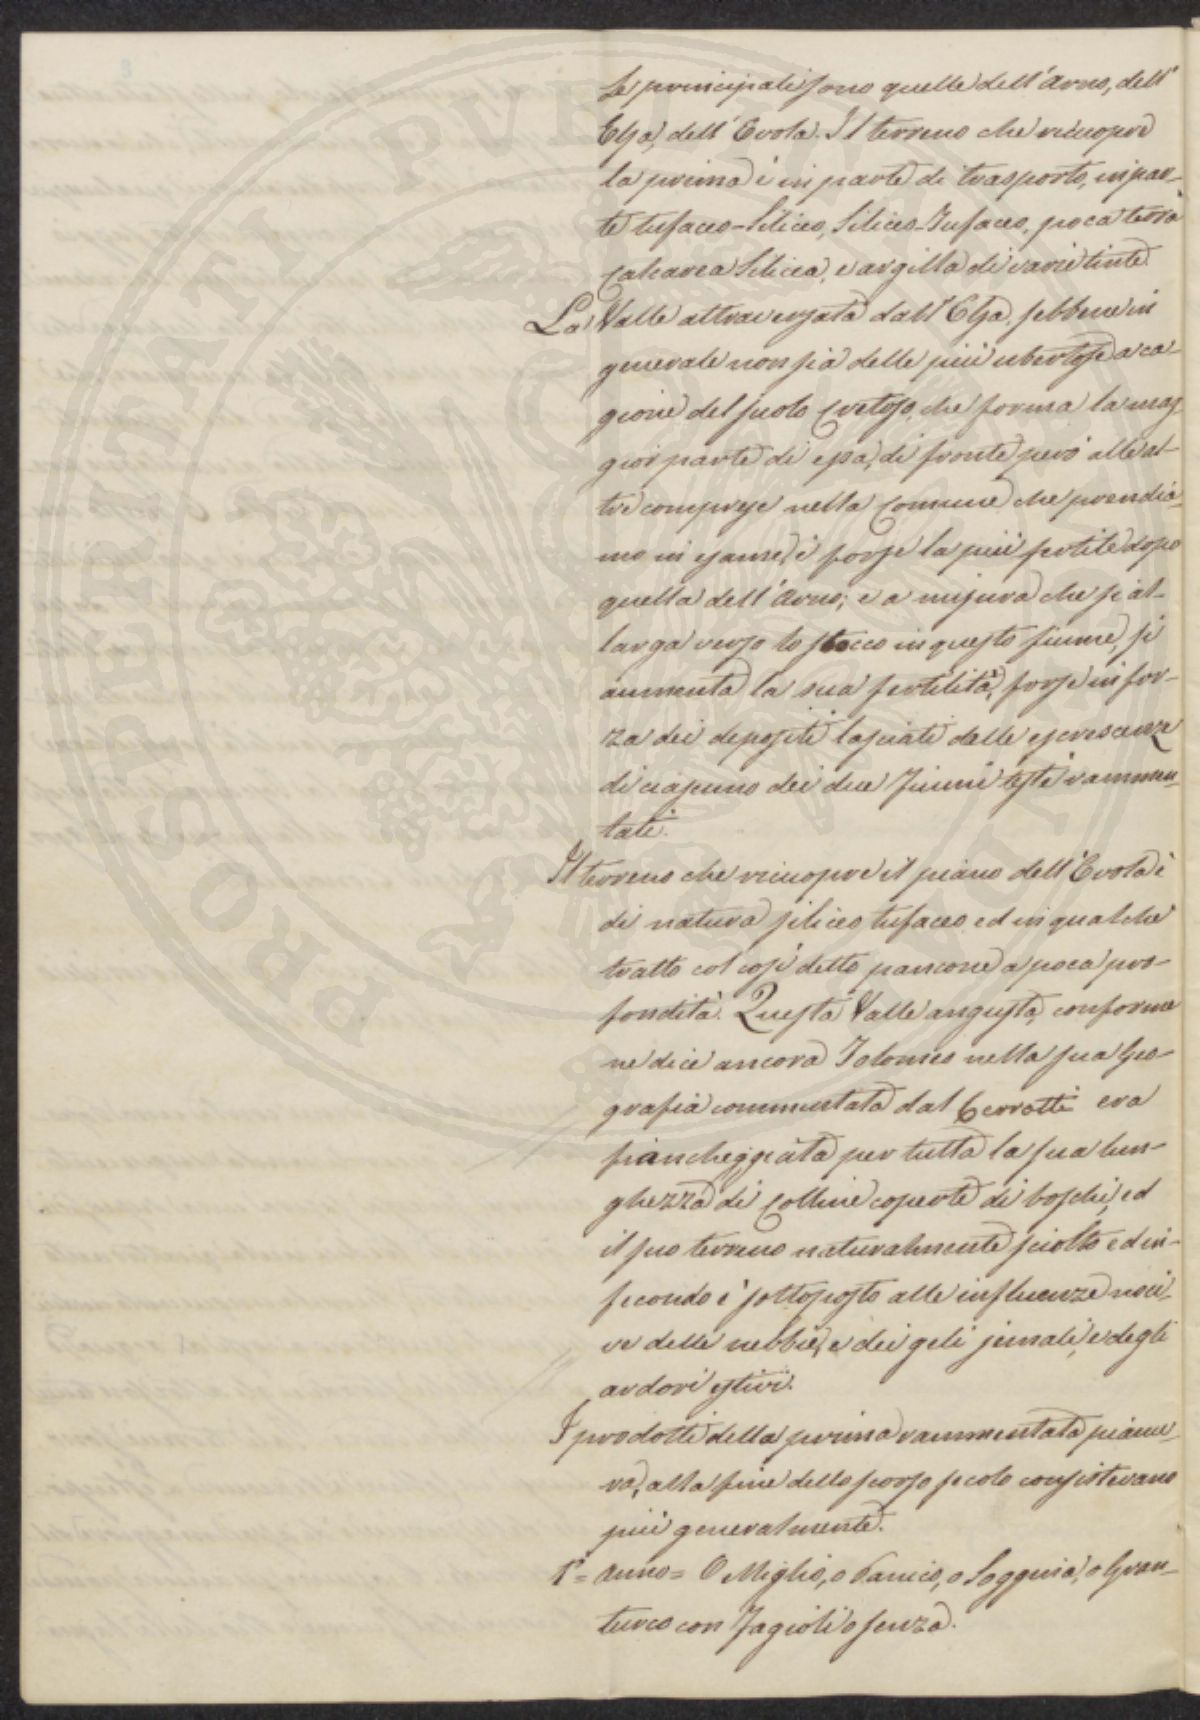 Le principali sono quelle dell'Arno, dell'
Elsa, dell'Evola. Il terreno che ricuopre
la prima è in parte di trasporto, in par-
te tufaceo-Siliceo, Siliceo-Tufaceo, poca terra
Calcarea Silicea, e argilla di varie tinte.
La Valle attraversata dall'Elsa, sebbene in
generale non sia delle più ubertose a ca-
gione del suolo Cretoso, che forma la mag
gior parte di essa, di fronte però alle al-
tre comprese nella Comune che prendia-
mo in esame, è forse la più fertile dopo
quella dell'Arno; e a misura che si al-
larga verso lo sbocco in questo fiume, si
aumenta la sua fertilità, forse in for-
za dei depositi lasciati delle escrescenze
di ciascuno dei due Fiumi testè rammen-
tati.
Il terreno che ricuopre il piano dell'Evola è
di natura siliceo tufaceo ed in qualche
tratto col così detto pancone a poca pro-
fondità. Questa Valle angusta, conforme
ne dice ancora Tolomeo nella sua Geo-
grafia commentata dal Cerrotti era
fiancheggiata per tutta la sua lun-
ghezza di Colline coperte di boschi, ed
il suo terreno naturalmente sciolto ed in-
fecondo è sottoposto alle influenze noci-
ve delle nebbie, e dei geli jemali, e degli
ardori estivi.
I prodotti della prima rammentata pianu-
ra, alla fine dello scorso secolo consistevano
più generalmente.
1° = Anno = O Miglio, o Panico, o Saggina, o Gran-
turco con Fagioli o senza.
PROSPERITATI PVBLICAE